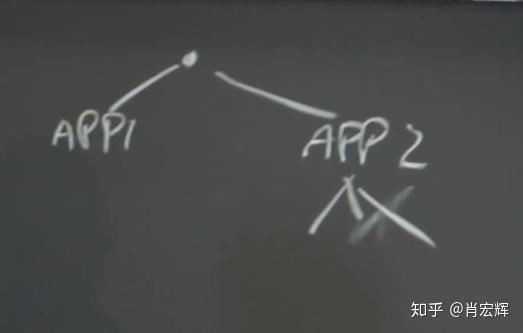 APP1
APP 2
知乎 @肖宏辉